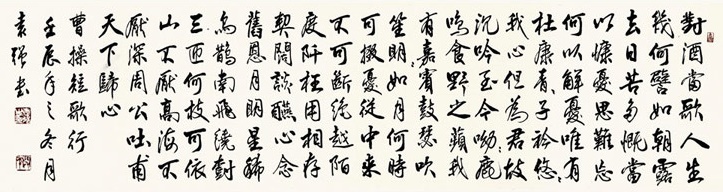 對酒當歌人生
幾何譬如朝露
去日苦多慨當
以慷憂思難忘
何以解憂唯有
杜康青〻子衿悠〻
我心但為君故
沉吟至今呦〻鹿
鳴食野之蘋我
有嘉賓鼓瑟吹
笙明〻如月何時
可掇憂從中來
不可斷絕越陌
度阡枉用相存
契闊談讌心念
舊恩月明星稀
烏鵲南飛繞樹
三匝何枝可依
山不厭高海不
厭深周公吐哺
天下歸心
曹操短歌行
壬辰年之冬月
袁強書